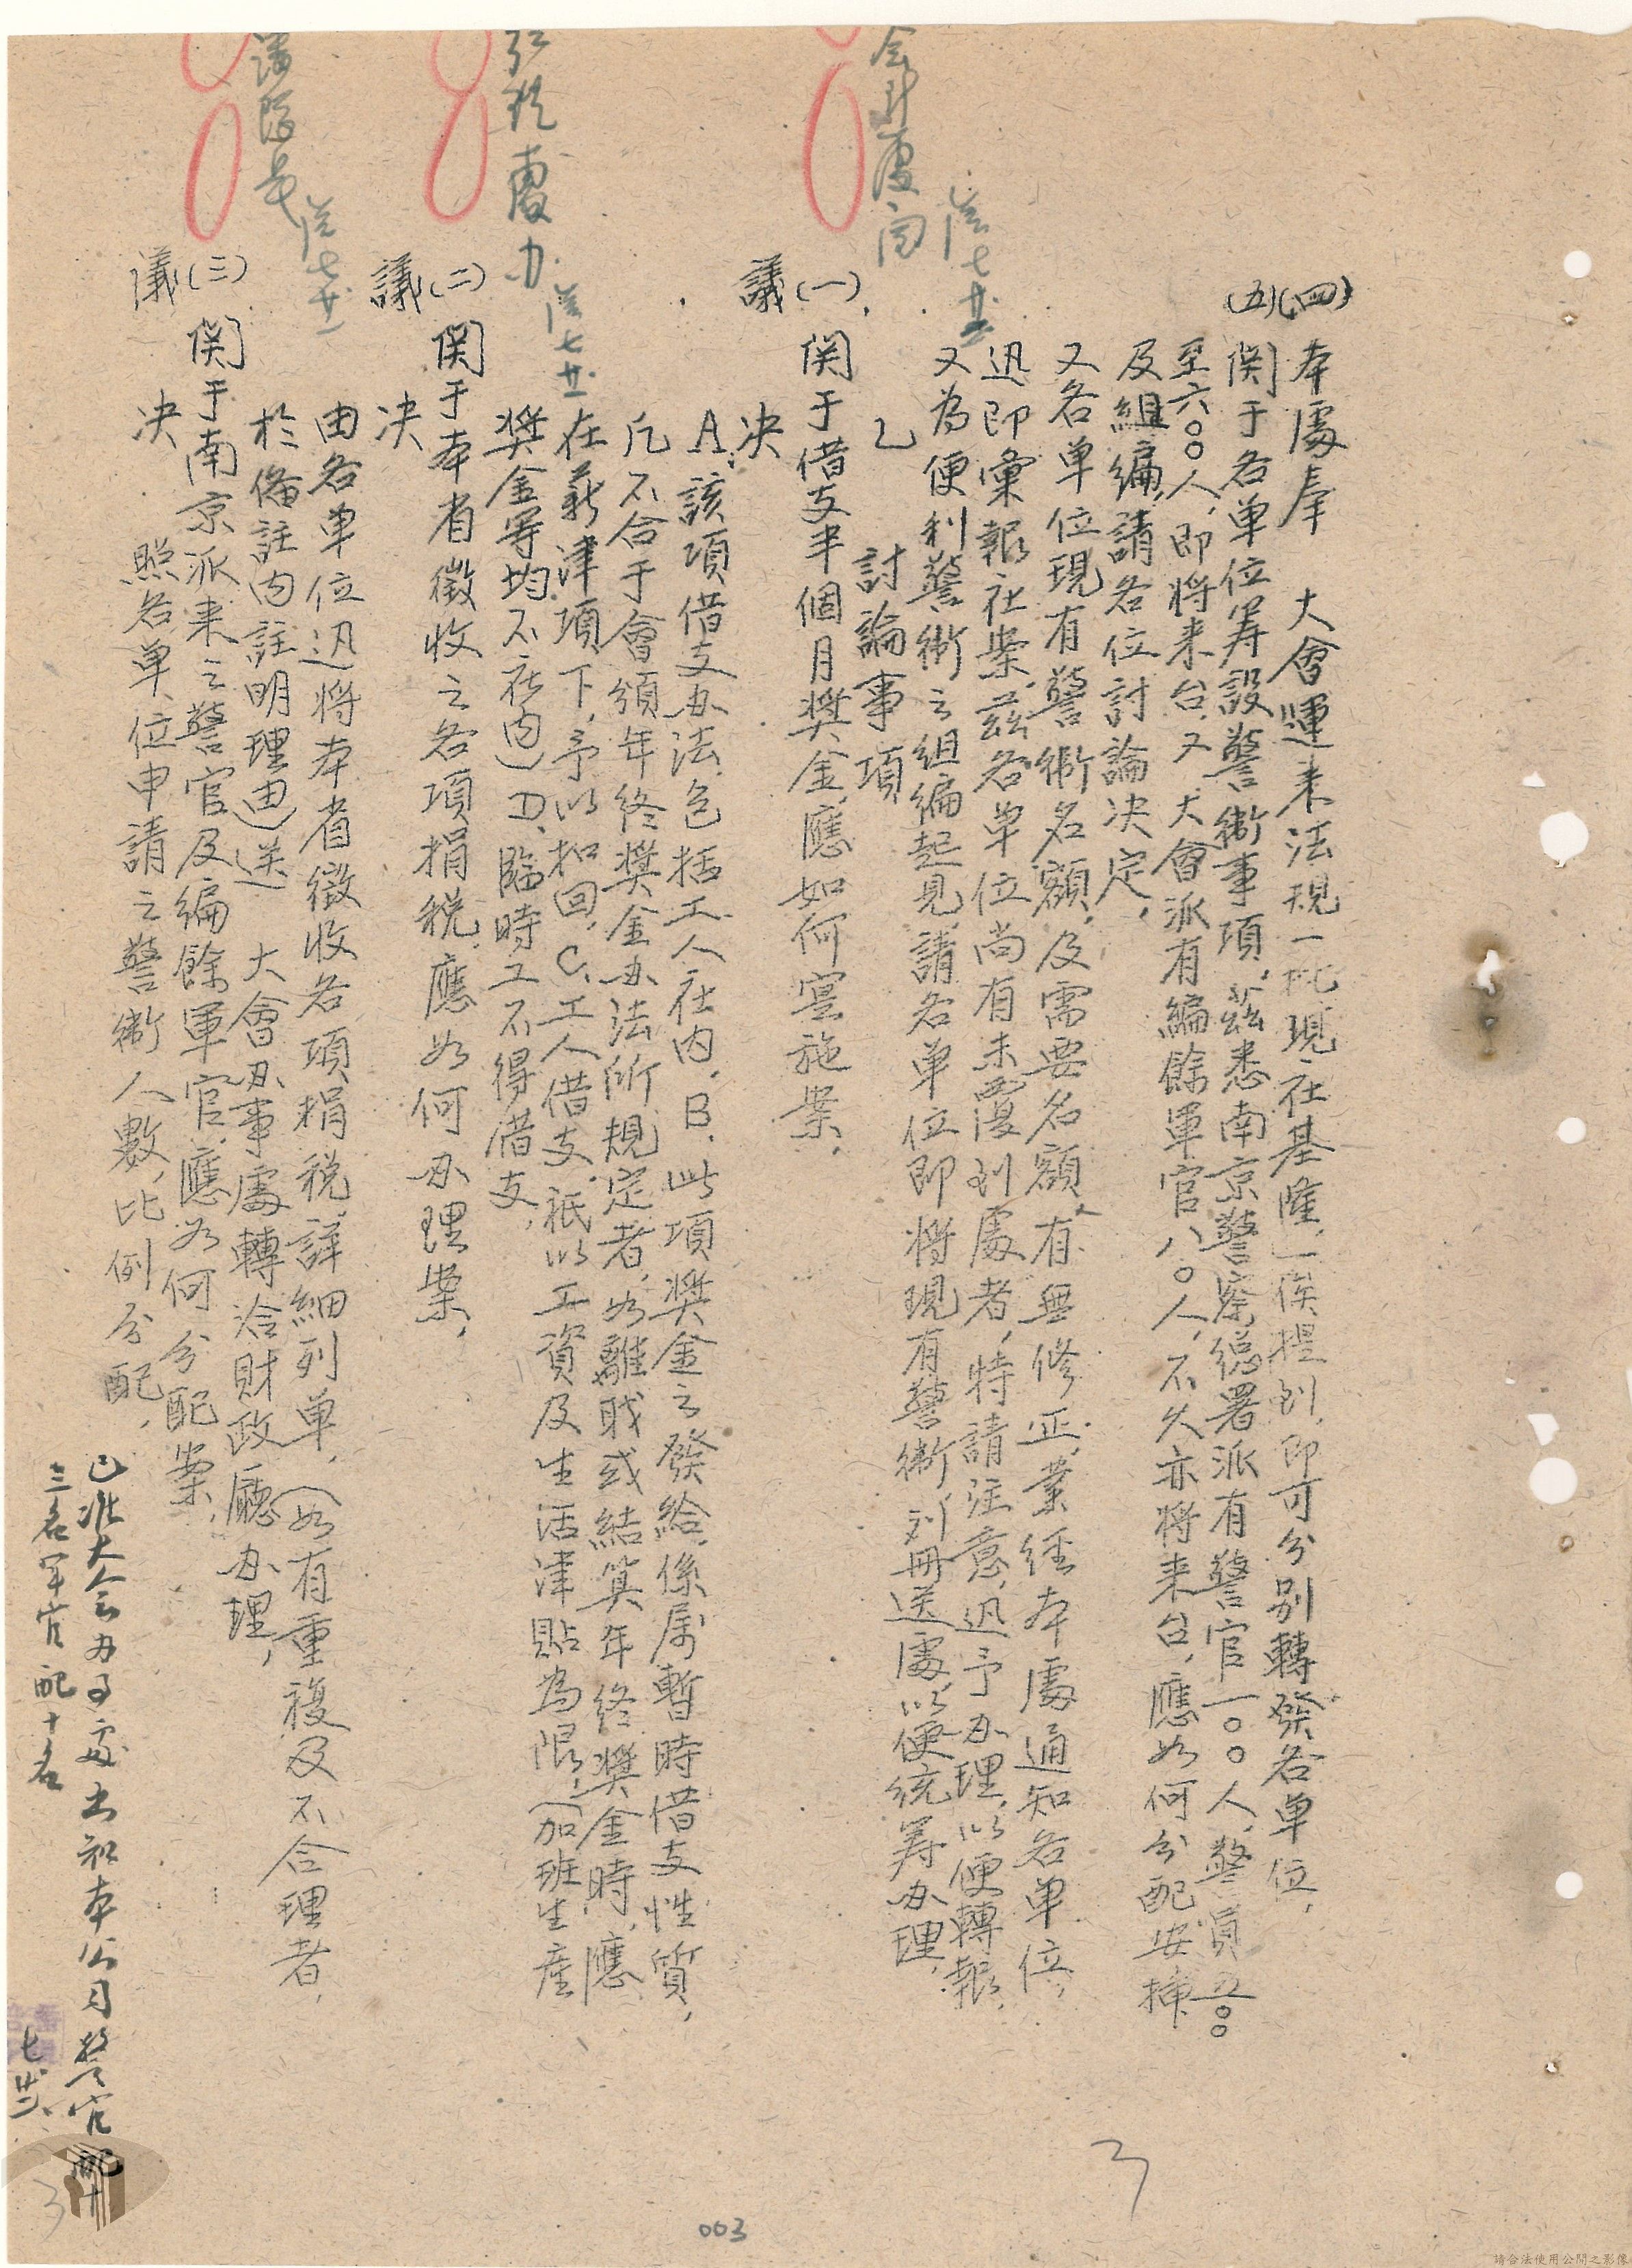 (四) 本處奉　大會運来法規一批現在基隆，一俟提到，即可分別轉發各单位，
(五) 関于各单位筹設警衛事項，茲悉南京警察總署派有警官一〇〇人，警員五〇〇
至六〇〇人，即将来台，又　大會派有編餘軍官八〇人，不久亦将来台，應如何分配安揷
及組編，請各位討論决定，
又各单位現有警衛名額，及需要名額，有無修正，業経本處通知各单位，
迅即彙報社案，茲各单位尚有未覆到處者，特請注意，迅予办理，以便轉報，
又為便利警衛之組編起見，請各单位即将現有警衛，列册送處，以便統筹办理，
乙　討論事項
(一) 関于借支半個月奨金，應如何寔施案，
議
决
A，該項借支办法，包括工人在内，B．此項奨金之發給，係属暫時借支性質，
凡不合于會頒年終奨金办法所規定者，如離职或結算年終奨金時，應
在薪津項下，予以扣回，C、工人借支，祇以工資及生活津貼為限，（加班生産
奨金等均不在内）D、臨時工不得借支，
(二) 関于本省徵收之各項捐税，應如何办理案，
議
决
由各单位迅将本省徵收各項捐税，詳細列单，（如有重複及不合理者，
於備註内註明理由）送　大會办事處轉洽財政廳办理，
(三) 関于南京派来之警官及編餘軍官，應如何分配案，
議
决
照各单位申請之警衛人數，比例分配，
已准大会办事處出知本公司警官配十
三名军官配十名
七廿二
会計處阅
七廿二
處办
七廿二
七廿二
3
3
003
請合法使用公開之影像